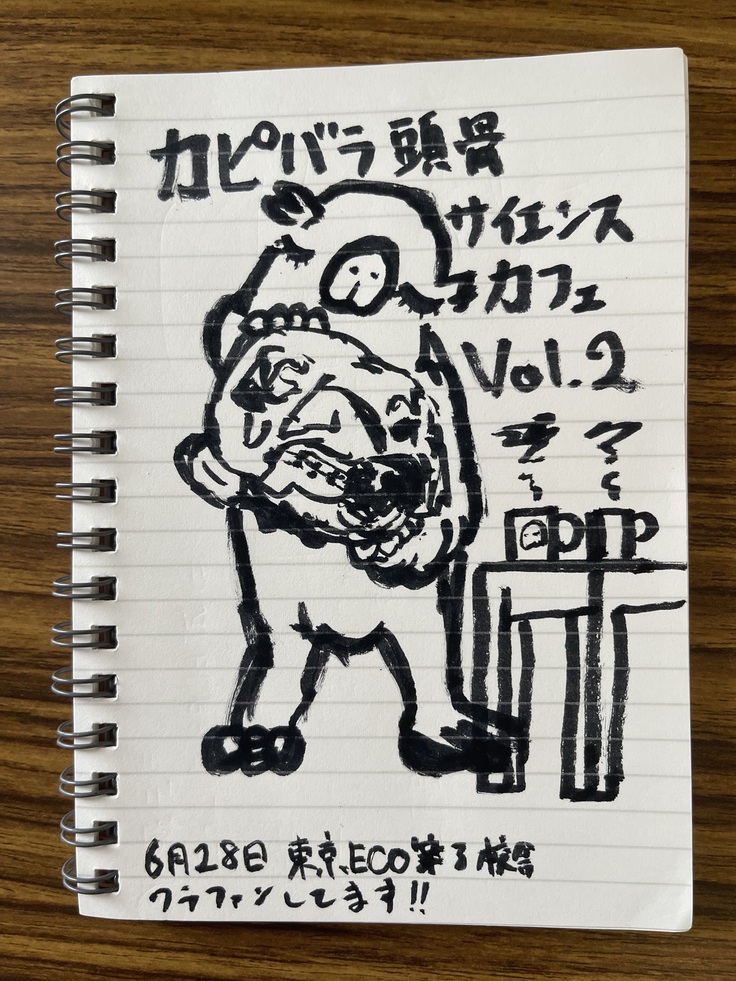 カピバラ頭骨
サイエンス
カフェ
Vol.2
6月28日 東京ECO第3校舎
クラファンしてます!!